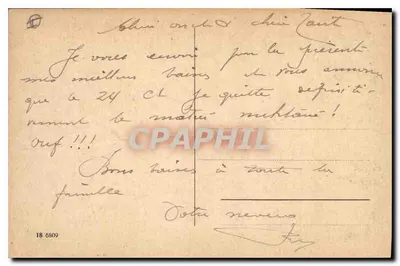 cher oncle & chère Tante
Je vous envoi par la présente
mes meilleurs baisers et vous annonce
que le 24 ct je quitte définiti-
vement le
ouf!!!
Bons baisers à toute la
famille
Votre neveu
CPAPHIL
18 6909